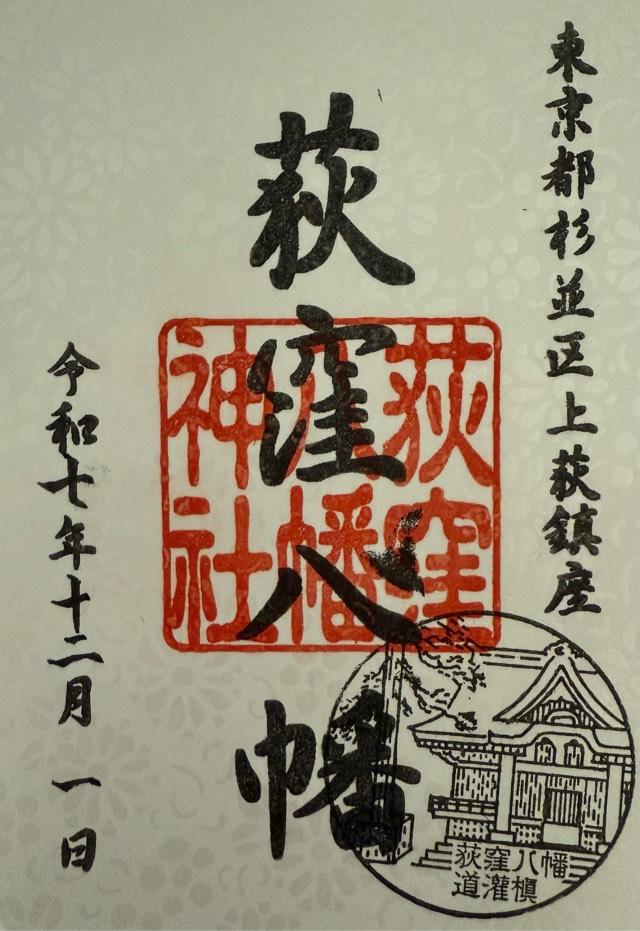 東京都杉並区上荻鎮座
荻窪八幡
荻窪
八幡
神社
荻窪八幡
道灌槇
令和七年十二月一日